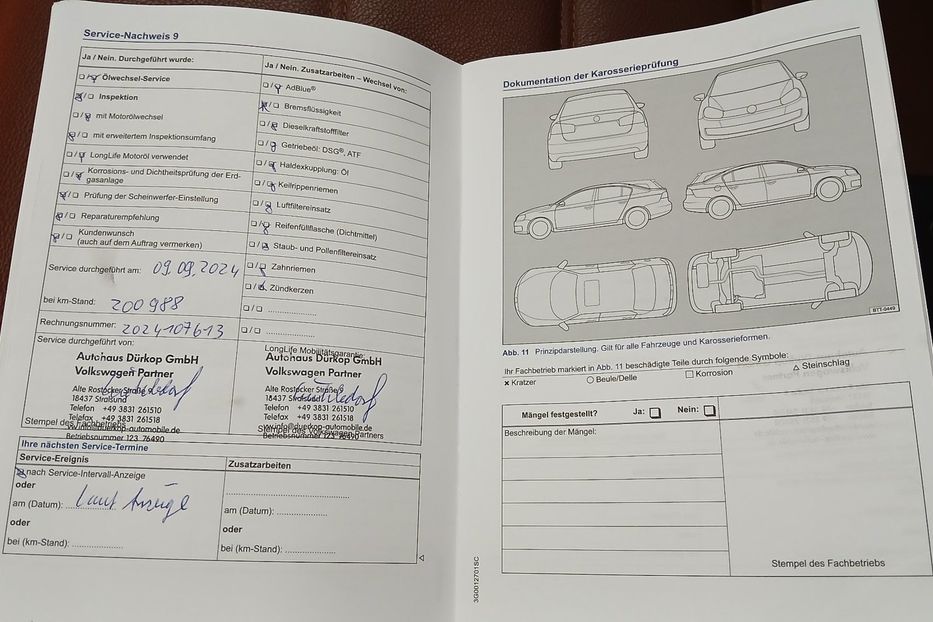 Service-Nachweis 9
Ja / Nein. Durchgeführt wurde:
Ölwechsel-Service
Inspektion
mit Motorölwechsel
mit erweitertem Inspektionsumfang
LongLife Motoröl verwendet
Korrosions- und Dichtheitsprüfung der Erd-
gasanlage
Prüfung der Scheinwerfer-Einstellung
Reparaturempfehlung
Kundenwunsch
(auch auf dem Auftrag vermerken)
Service durchgeführt am: 09.09.2024
bei km-Stand: 200988
Rechnungsnummer: 2024107613
Service durchgeführt von:
Autohaus Dürkop GmbH
Volkswagen Partner
Alte Rostocker Straße 9
18437 Stralsund
Telefon +49 3831 261510
Telefax +49 3831 261518
vw.info@duerkop-automobile.de
Betriebsnummer 123 76490
Stempel des Fachbetriebs
Ja / Nein. Zusatzarbeiten – Wechsel von:
AdBlue®
Bremsflüssigkeit
Dieselkraftstofffilter
Getriebeöl: DSG®, ATF
Haldexkupplung: Öl
Keilrippenriemen
Luftfiltereinsatz
Reifenfüllflasche (Dichtmittel)
Staub- und Pollenfiltereinsatz
Zahnriemen
Zündkerzen
LongLife Mobilitätsgarantie
Autohaus Dürkop GmbH
Volkswagen Partner
Alte Rostocker Straße 9
18437 Stralsund
Telefon +49 3831 261510
Telefax +49 3831 261518
vw.info@duerkop-automobile.de
Betriebsnummer 123 76490
Stempel des Volkswagen Partners
Ihre nächsten Service-Termine
Service-Ereignis
nach Service-Intervall-Anzeige
oder
am (Datum): laut Anzeige
oder
bei (km-Stand):
Zusatzarbeiten
am (Datum):
oder
bei (km-Stand):
Dokumentation der Karosserieprüfung
BTT-0449
Abb. 11 Prinzipdarstellung. Gilt für alle Fahrzeuge und Karosserieformen.
Ihr Fachbetrieb markiert in Abb. 11 beschädigte Teile durch folgende Symbole:
× Kratzer ○ Beule/Delle □ Korrosion △ Steinschlag
Mängel festgestellt? Ja: Nein:
Beschreibung der Mängel:
Stempel des Fachbetriebs
3G0012701SC